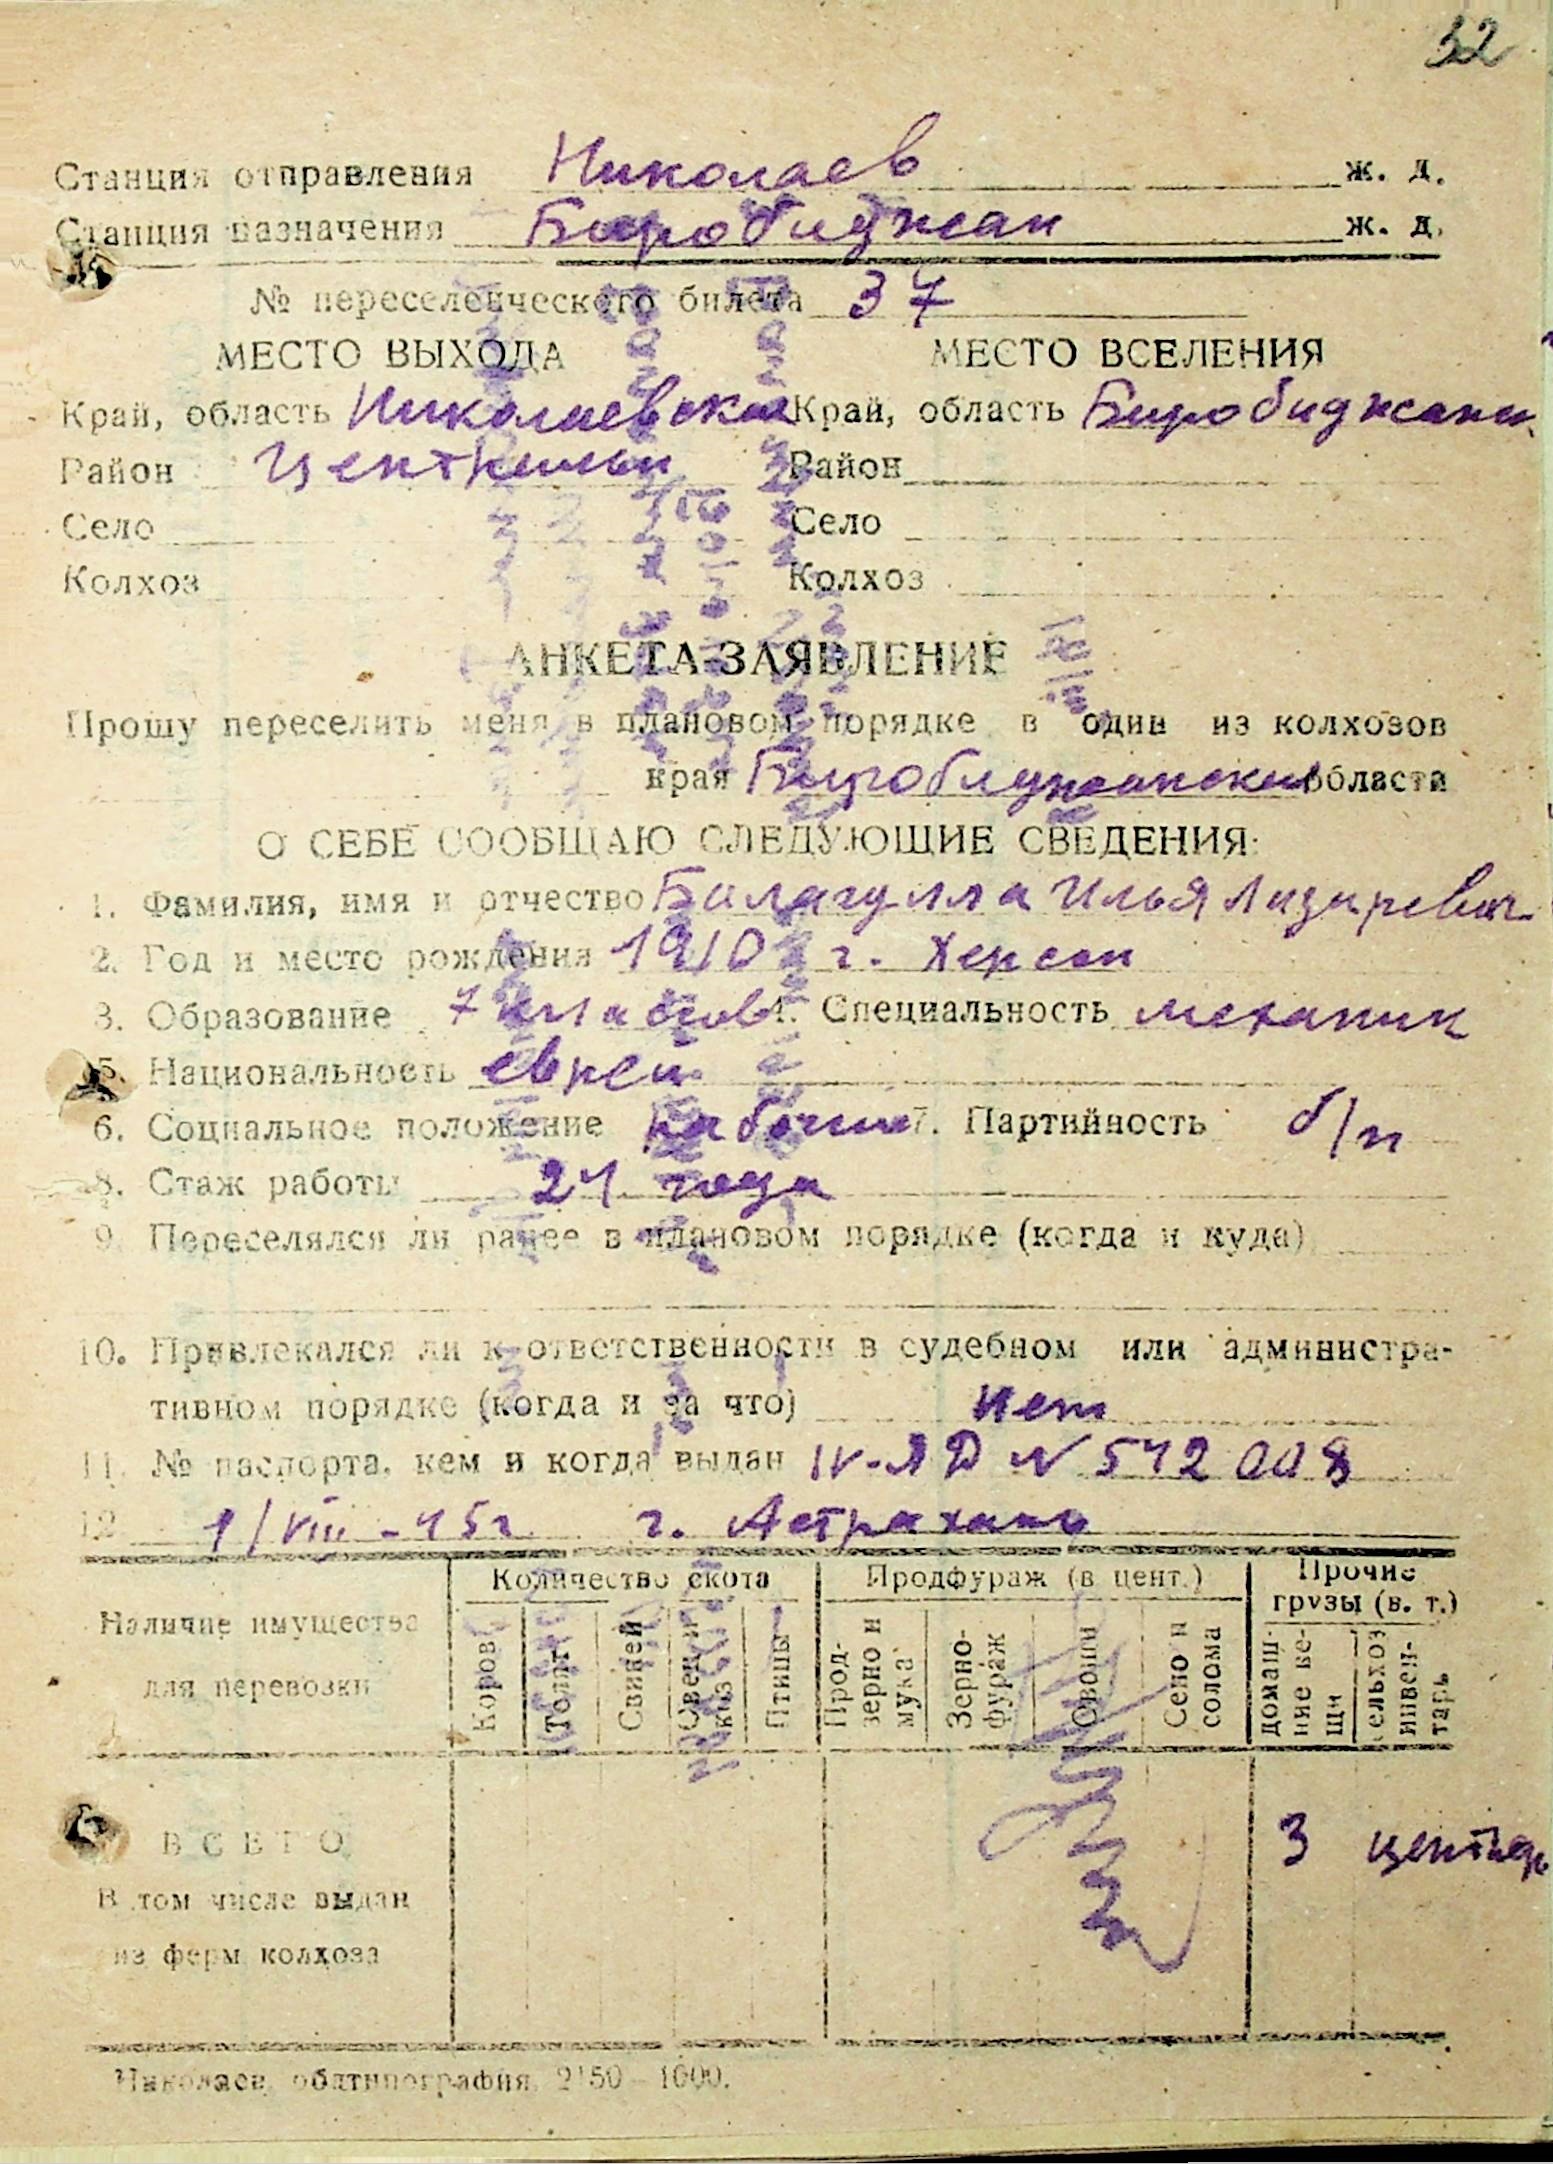 32
Станция отправления Николаев ж. д.
Станция назначения Биробиджан ж. д.
№ переселенческого билета 37
МЕСТО ВЫХОДА МЕСТО ВСЕЛЕНИЯ
Край, область Николаевская Край, область Биробиджанск
Район Район
Село Село
Колхоз Колхоз
АНКЕТА-ЗАЯВЛЕНИЕ
Прошу переселить меня в плановом порядке в один из колхозов
края Биробиджанский области
О СЕБЕ СООБЩАЮ СЛЕДУЮЩИЕ СВЕДЕНИЯ:
1. Фамилия, имя и отчество Билагулла Илья Лазыревич
2. Год и место рождения 1910 г. Херсон
3. Образование 7 классов 4. Специальность механик
5. Национальность еврей
6. Социальное положение рабочий 7. Партийность б/п
8. Стаж работы 24 года
9. Переселялся ли ранее в плановом порядке (когда и куда)
10. Привлекался ли к ответственности в судебном или администра-
тивном порядке (когда и за что) нет
11. № паспорта, кем и когда выдан IV-ЯД N 542008
12 1/VIII-45г. г. Астрахань
Наличие имущества для перевозки
Количество скота Продфураж (в цент.) Прочие грузы (в. т.)
Коров (голов) Свиней Овец и коз Птицы Прод-зерно и мука Зерно-фураж Овощи Сено и солома домаш-ние ве-щи сельхоз инвен-тарь
ВСЕГО 3 центнер
В том числе выдан
из ферм колхоза
Николаев, облтипография, 2150—1000.